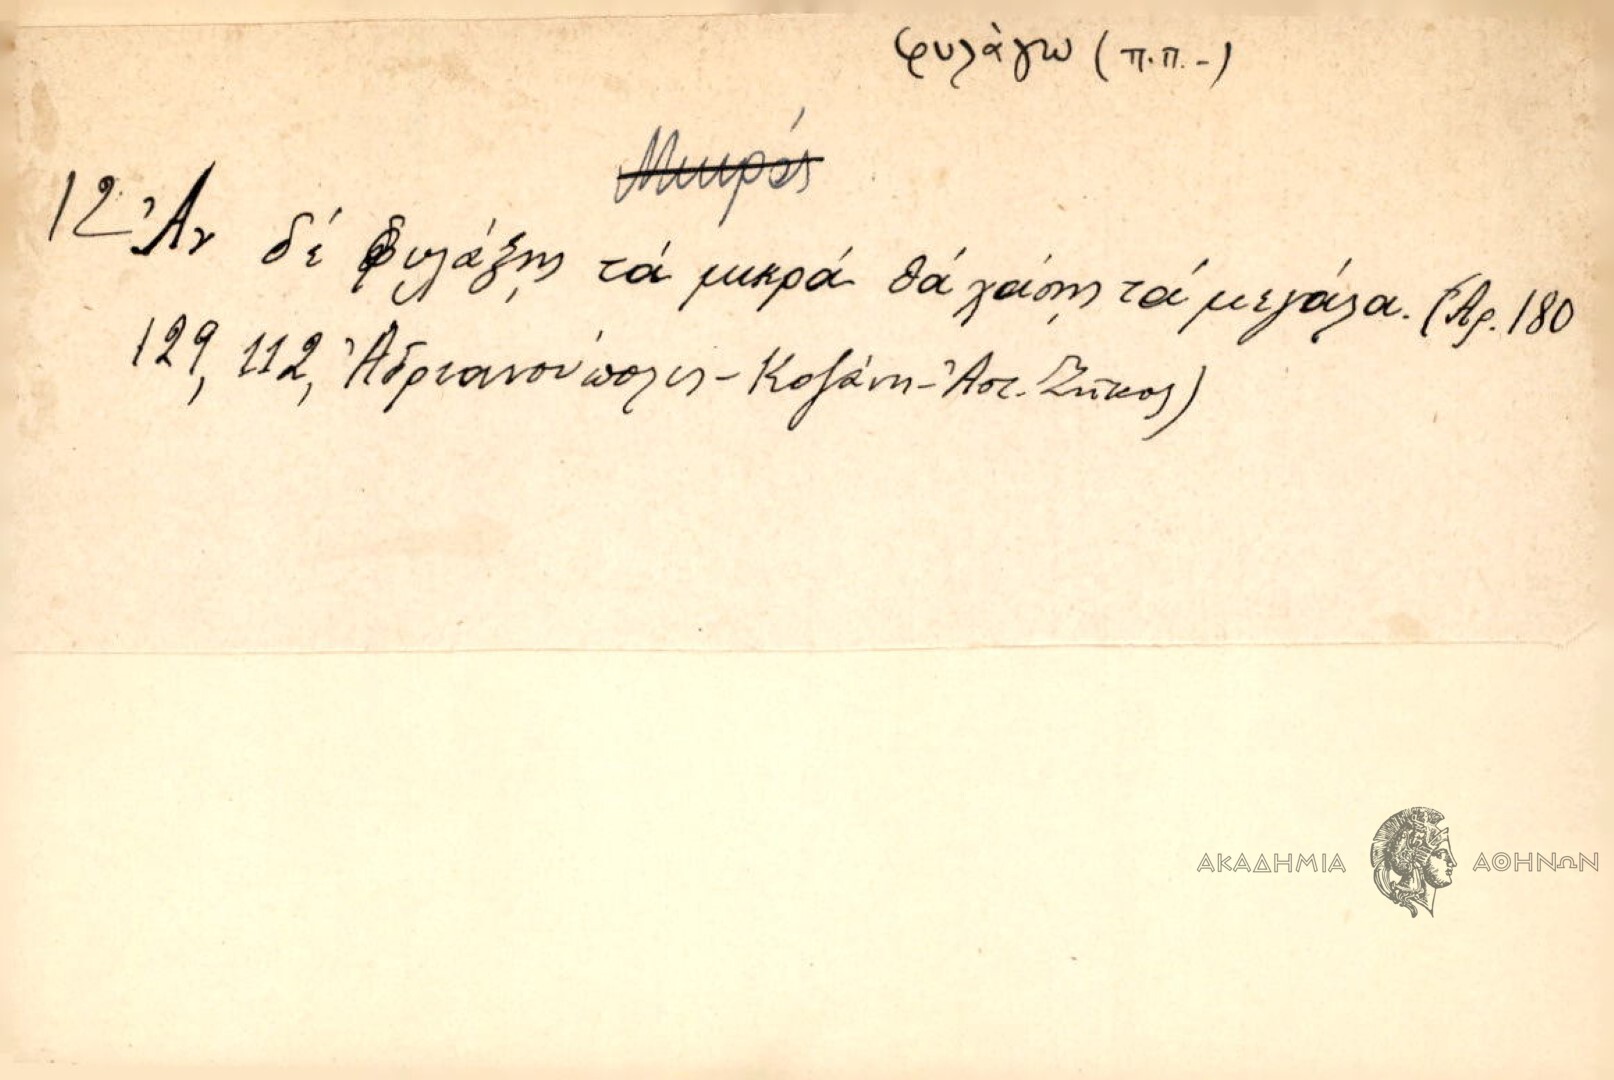 φυλάγω (π.π.-)
Μικρός
12 Ἄν δέ φυλάξῃς τά μικρά θά χάσῃς τά μεγάλα. (Ἀρ. 180
129, 112, Ἀδριανούπολις - Κοζάνη - Ἀστ. Ζῆκος)
ΑΚΑΔΗΜΙΑ ΑΘΗΝΩΝ